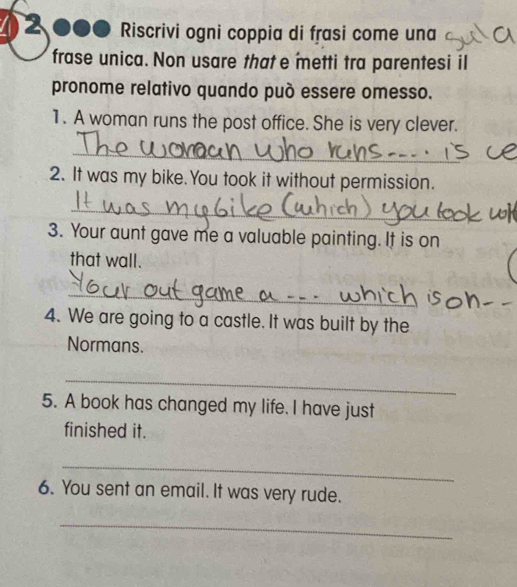 2 Riscrivi ogni coppia di frasi come una sul a
frase unica. Non usare that e metti tra parentesi il
pronome relativo quando può essere omesso.
1. A woman runs the post office. She is very clever.
The woman who runs .... is ce
2. It was my bike. You took it without permission.
It was my bike (which) you took
3. Your aunt gave me a valuable painting. It is on
that wall.
Your out game a ... which is on --
4. We are going to a castle. It was built by the
Normans.
5. A book has changed my life. I have just
finished it.
6. You sent an email. It was very rude.